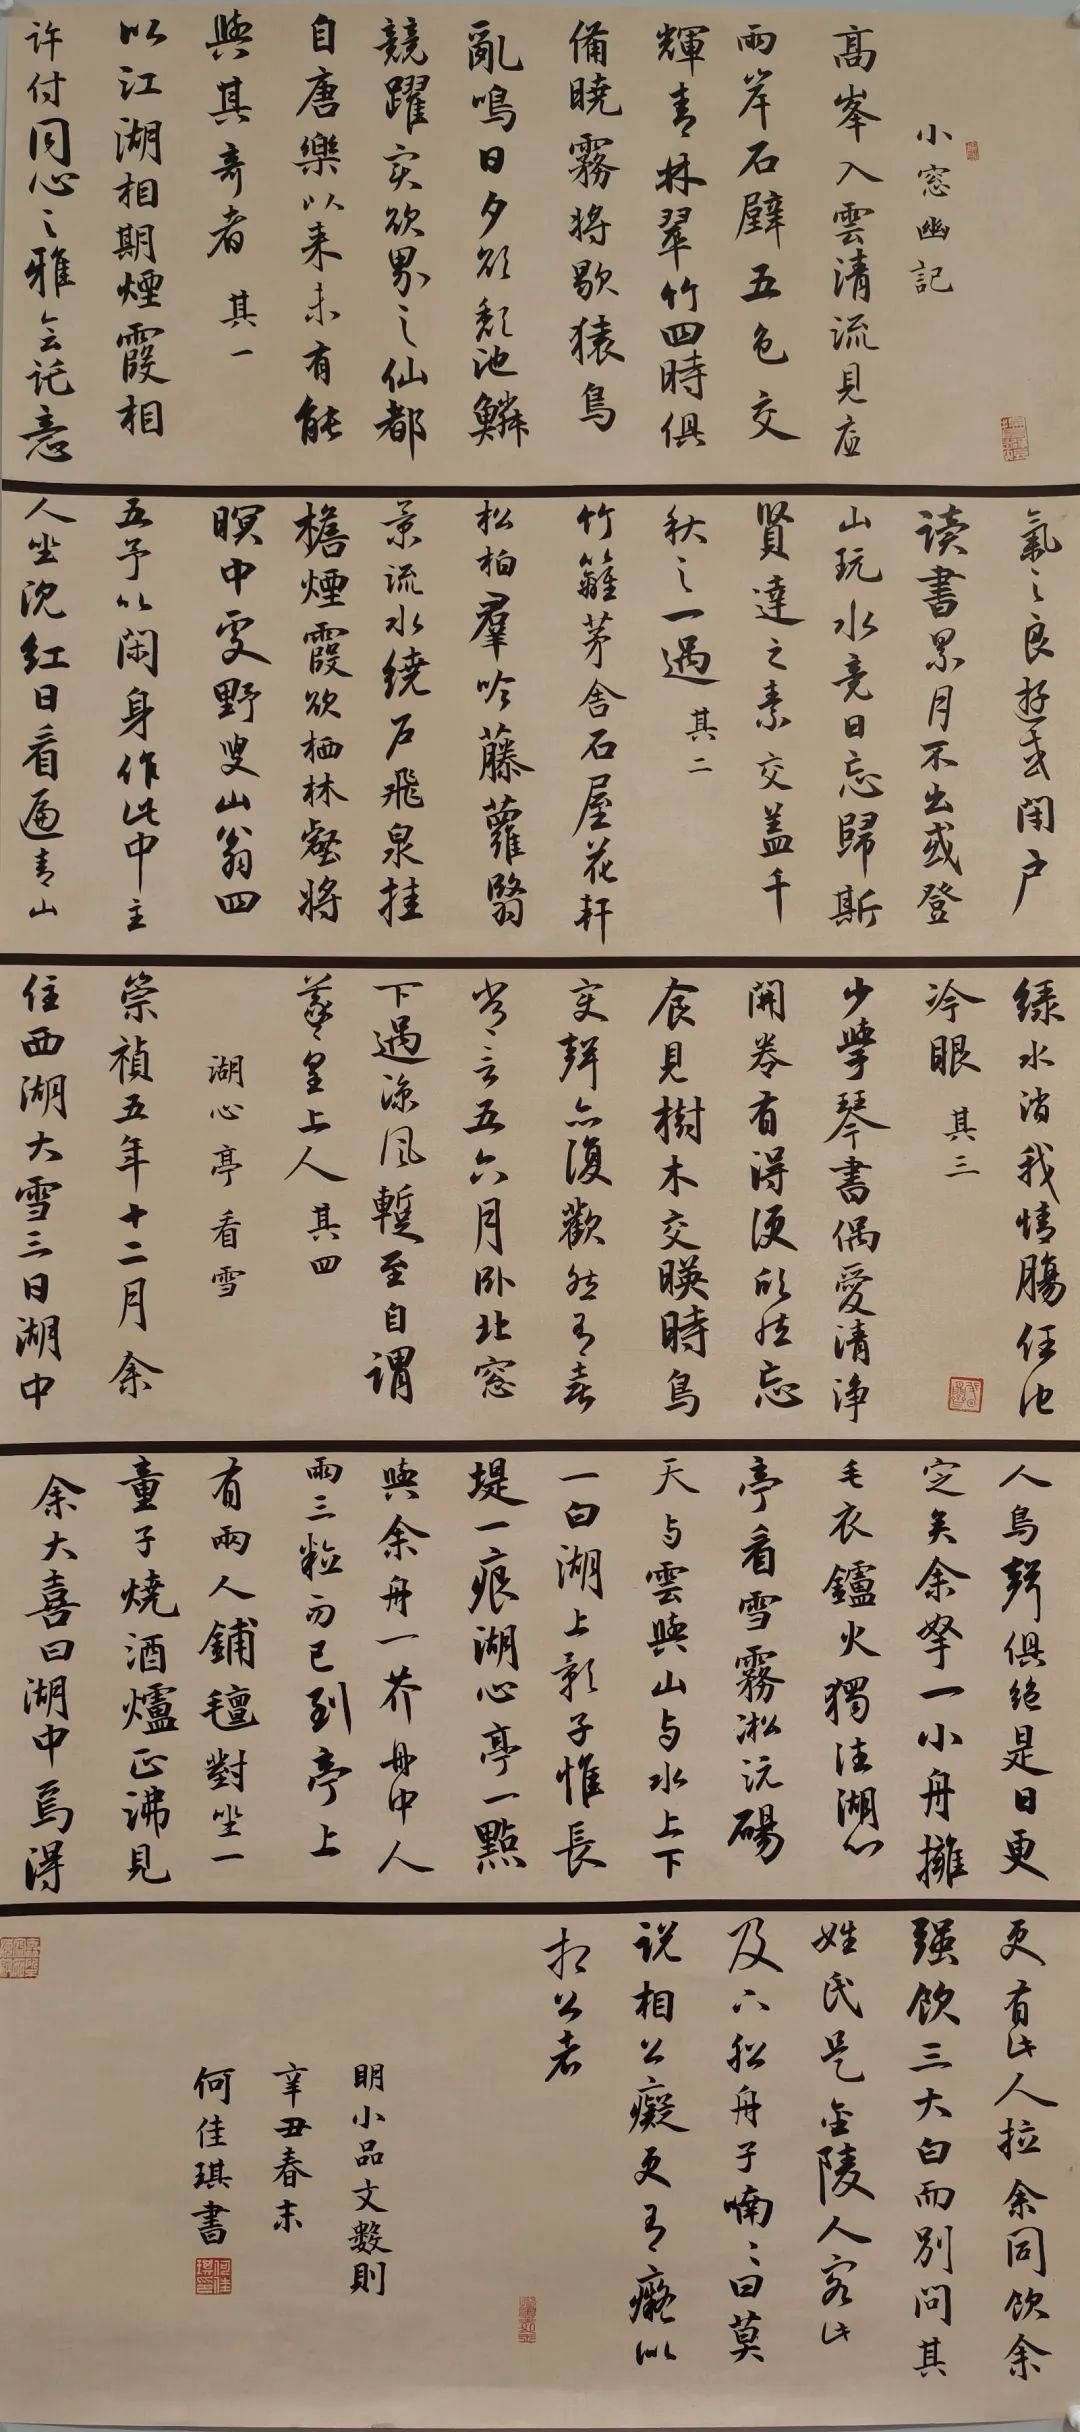 小窓幽記
高峯入雲清流見底
兩岸石壁五色交
輝青林翠竹四時俱
備曉霧將歇猿鳥
亂鳴日夕欲頹池鱗
競躍实欲界之仙都
自唐樂以来未有能
與其奇者 其一
以江湖相期煙霞相
許付同心之雅会託意
氣之良遊或閉户
读書累月不出或登
山玩水竟日忘歸斯
賢達之素交蓋千
秋之一遇 其二
竹籬茅舍石屋花軒
松柏羣吟藤蘿翳
景流水繞户飛泉挂
檐煙霞欲栖林壑將
暝中处野叟山翁四
五予以閑身作此中主
人坐沈红日看遍青山
绿水消我情腸任他
冷眼 其三
少學琴書偶愛清净
開卷有得便欣然忘
食見樹木交暎時鳥
变聲亦復歡然有喜
常言五六月卧北窓
下遇涼風蹔至自謂
羲皇上人 其四
湖心亭看雪
崇禎五年十二月余
住西湖大雪三日湖中
人鳥聲俱絶是日更
定矣余拏一小舟擁
毛衣鑪火獨往湖心
亭看雪霧淞沆碭
天与雲與山与水上下
一白湖上影子惟長
堤一痕湖心亭一點
與余舟一芥舟中人
兩三粒而已到亭上
有兩人鋪氊對坐一
童子燒酒爐正沸見
余大喜曰湖中焉得
更有此人拉余同飲余
强飲三大白而別問其
姓氏是金陵人客此
及下船舟子喃〻曰莫
说相公癡更有癡似
相公者
明小品文數則
辛丑春末
何佳琪書